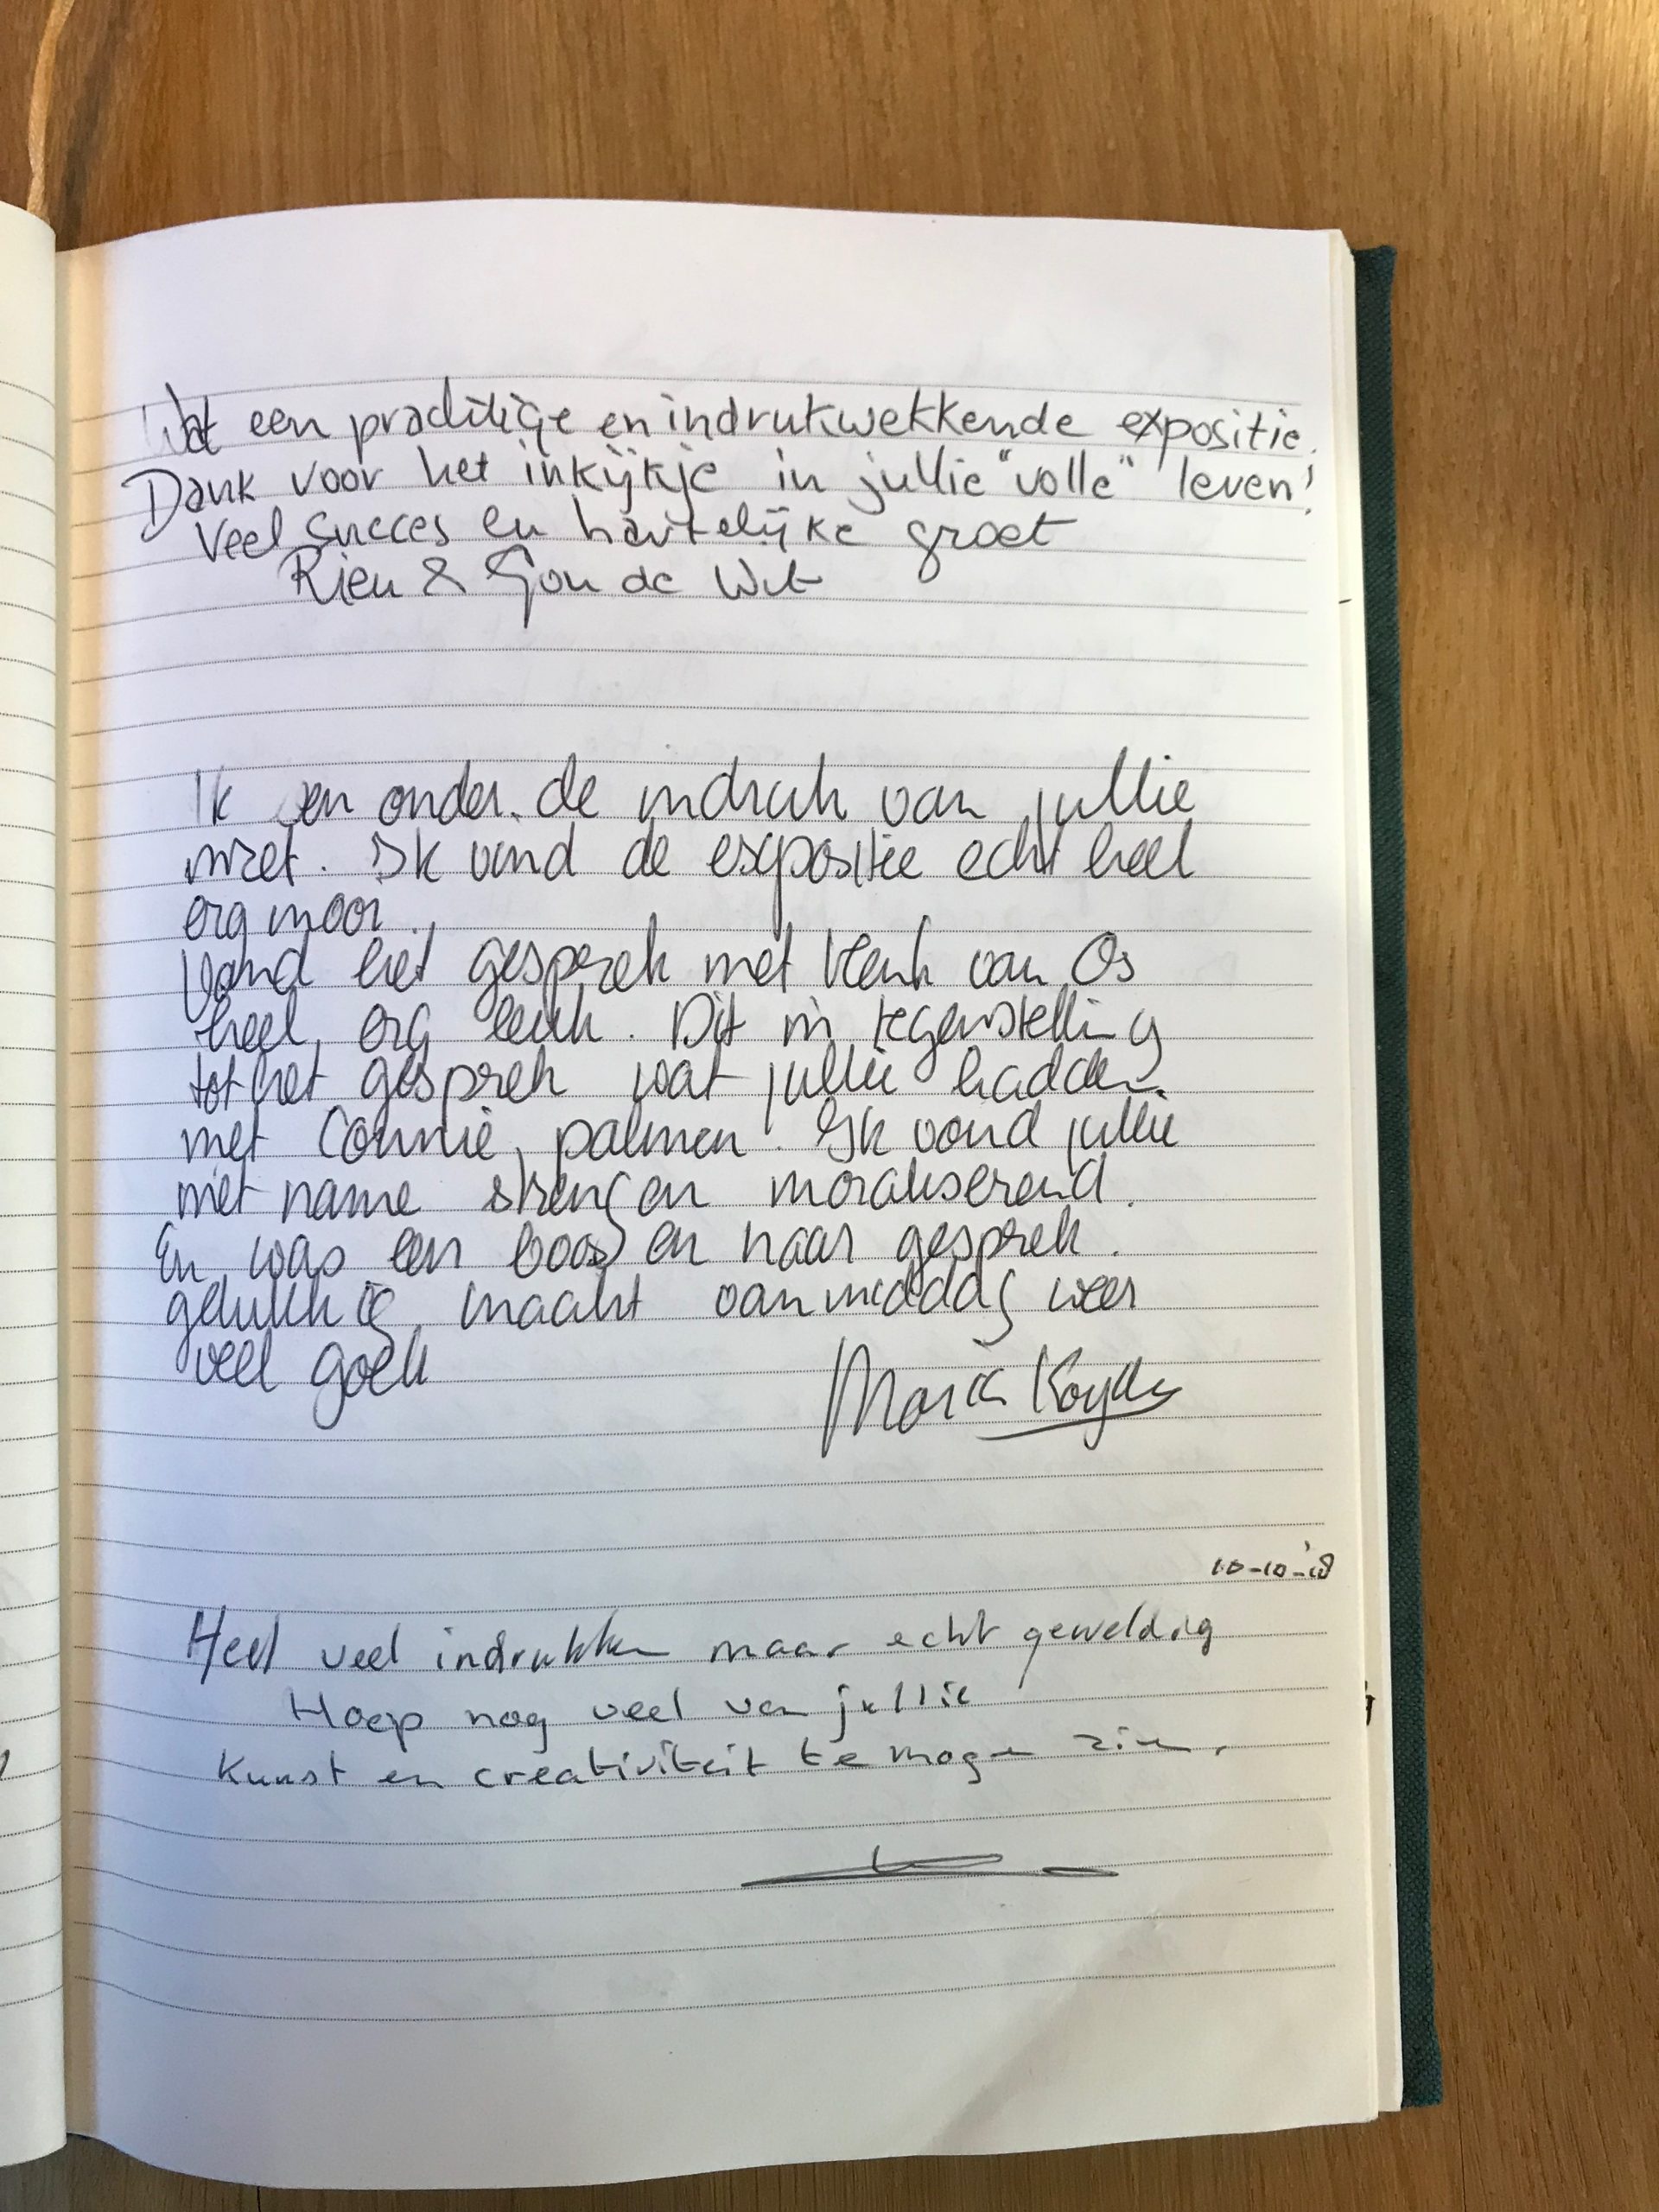 Wat een prachtige en indrukwekkende expositie.
Dank voor het inkijkje in jullie "volle" leven!
Veel succes en hartelijke groet
Rien & Gon de Wit
Ik ben onder de indruk van jullie
inzet. Ik vond de expositie echt heel
erg mooi.
Vond het gesprek met Henk van Os
heel erg leuk. Dit in tegenstelling
tot het gesprek wat jullie hadden
met Connie palmen. Ik vond jullie
met name streng en moraliserend.
En was een boos en naar gesprek.
gelukkig maakt vanmiddag weer
veel goed
Maria
10-10-'18
Heel veel indrukken maar echt geweldig
Hoop nog veel van jullie
Kunst en creativiteit te mogen zien.